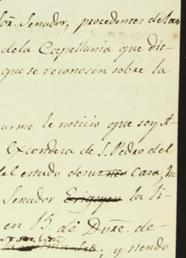 Senador, procedentes de las
de la Capellania que dis-
que se reconocen sobre la
arme le noticio que soy A
Excondera de S. Pedro del
del estado de nuevo casa, la
Senador la Vi-
en 13 de Dbre. de-
, y siendo